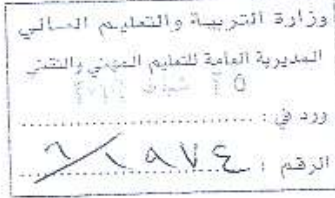 وزارة التربية والتعليم العالي
المديرية العامة للتعليم المهني والتقني
ورد في : ..............................
الرقم : ٦/١٩٧٤